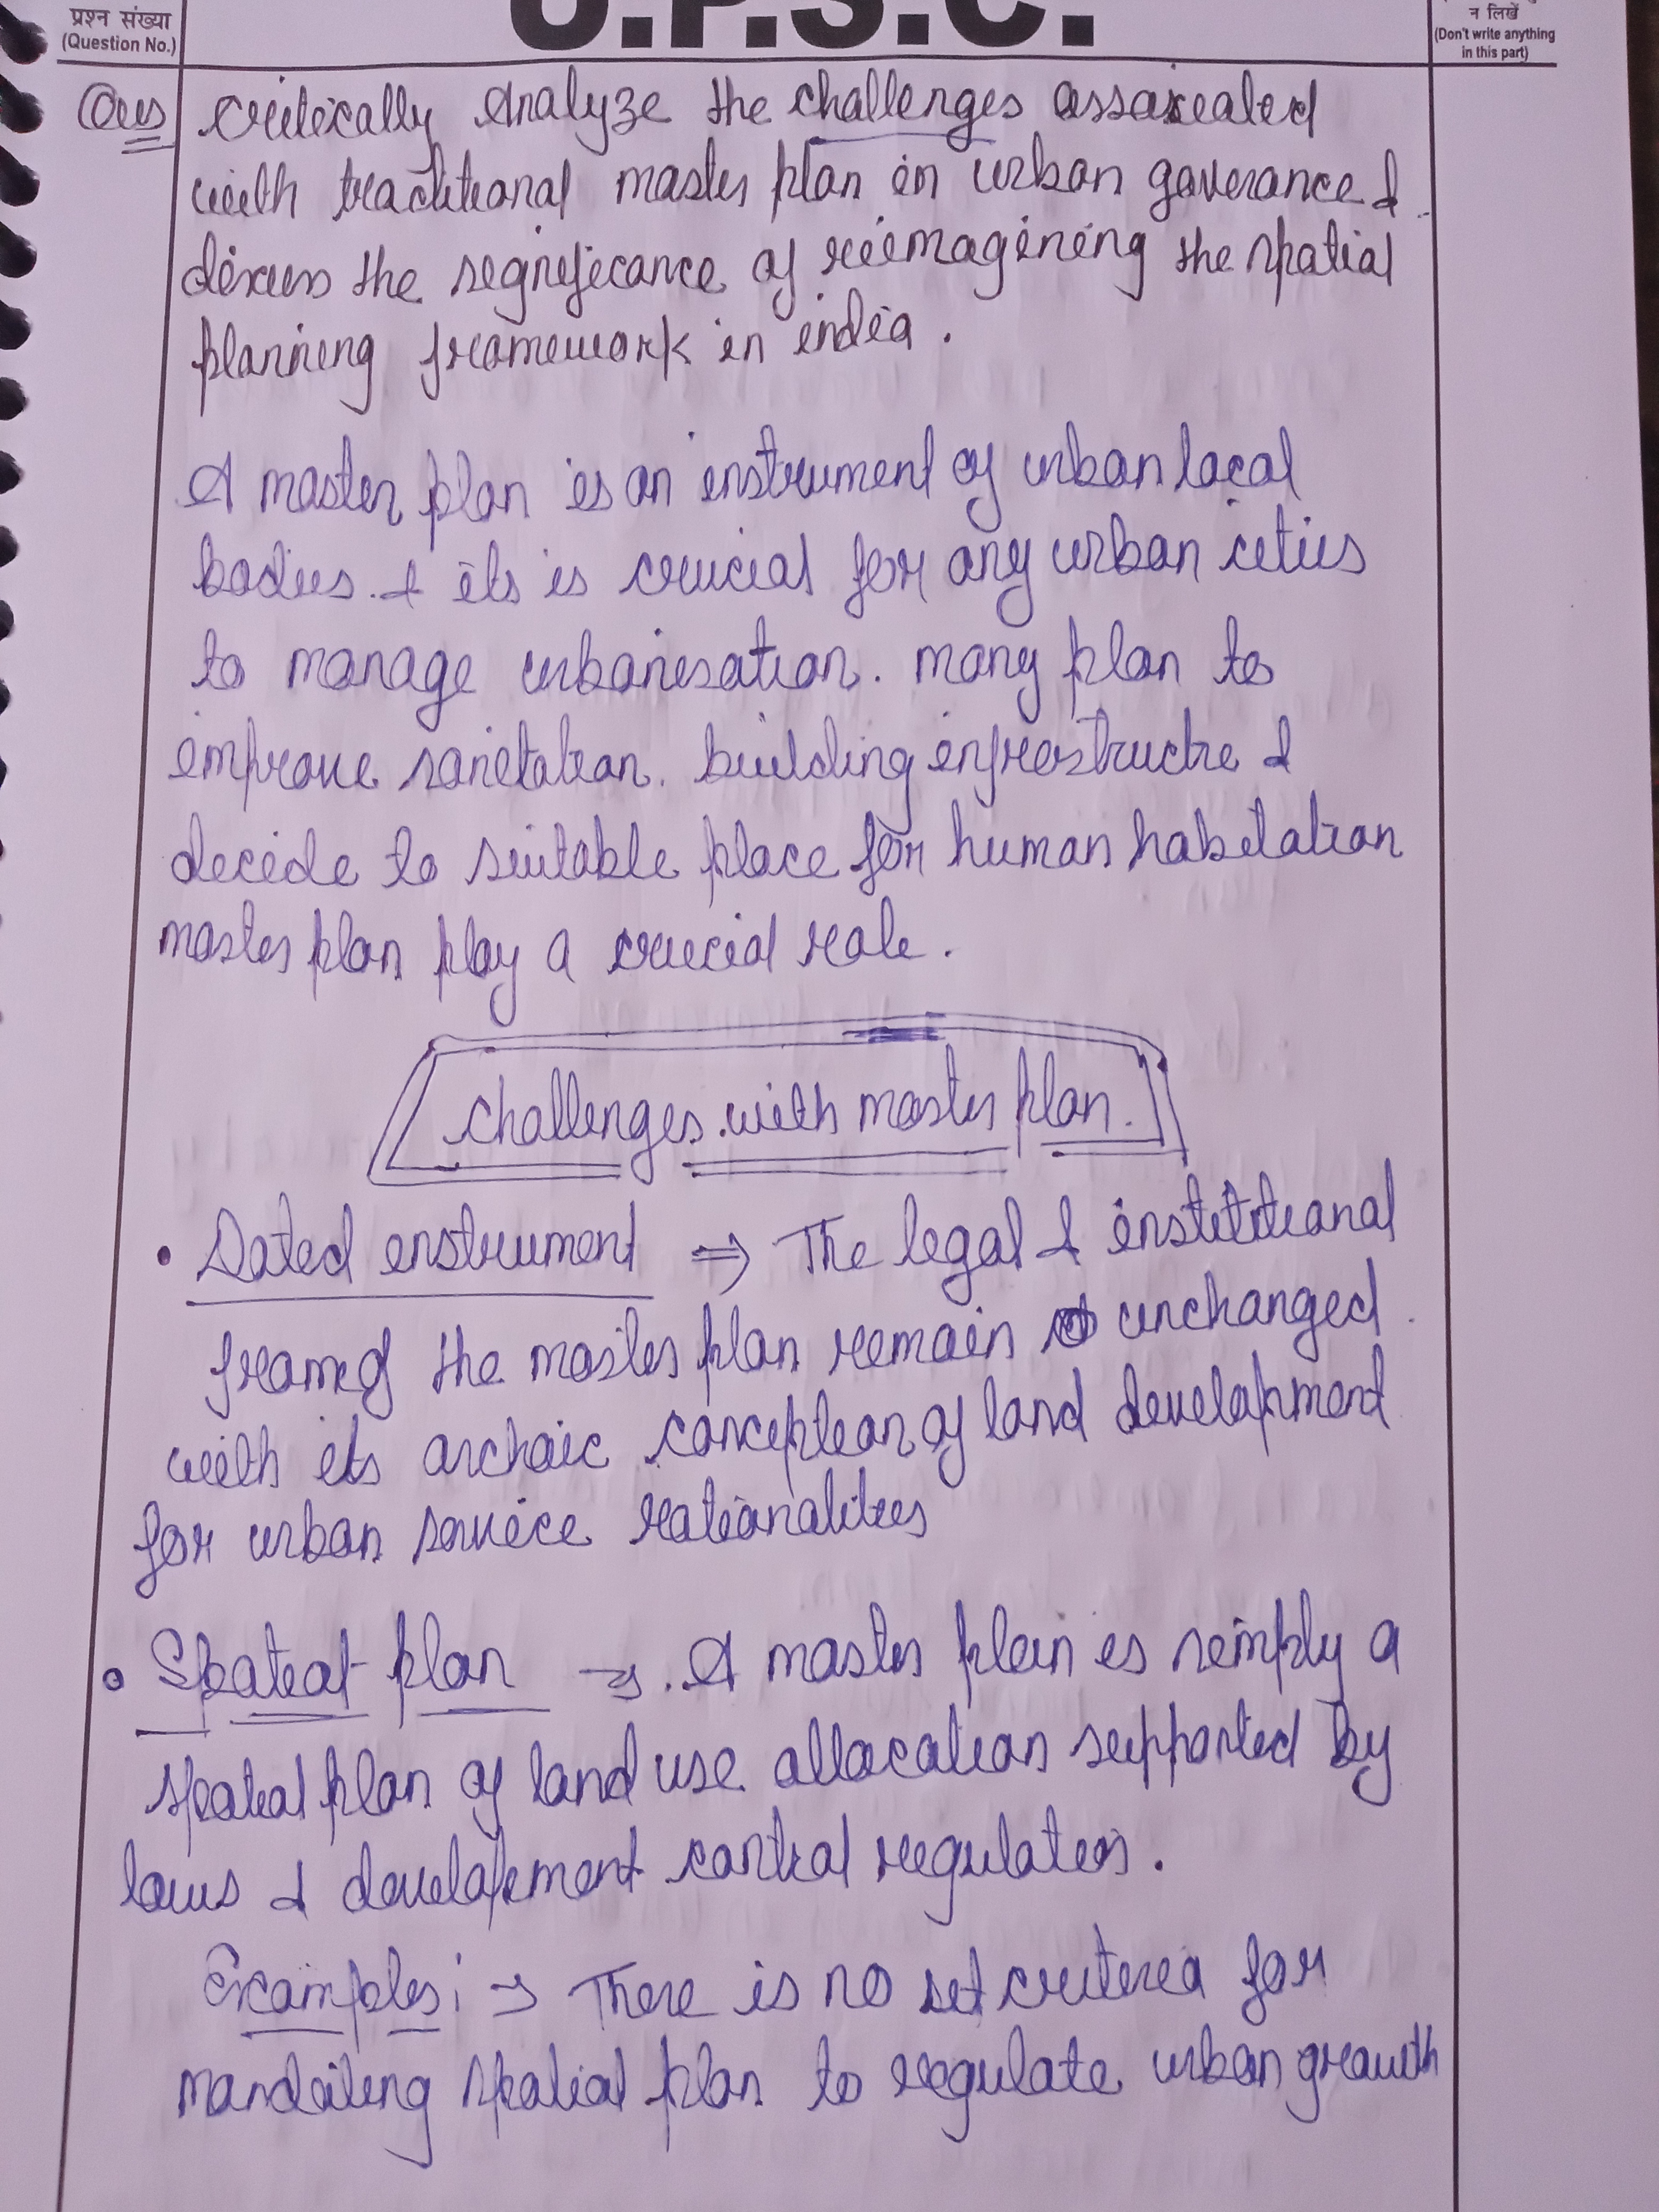 प्रश्न संख्या
(Question No.)
U.P.S.C.
न लिखें
(Don't write anything
in this part)
Ques Critically Analyze the challenges assosiated
with traditional master plan in urban goverance &
discuss the significance of reimagining the spatial
planning framework in india.
A master plan is an instrument of urban local
bodies. & its is crucial for any urban cities
to manage urbanisation. many plan to
improve sanitation. building infrastructre &
decide to suitable place for human habitation
master plan play a crucial role.
challenges. with master plan.
• Dated instrument ⇒ The legal & institutional
frame of the master plan remain unchanged
with its archaic conception of land development
for urban service rationalities
• Spateal plan → . A master plan is simply a
spatial plan of land use allocation supported by
laws & development control regulation.
Examples: → There is no set criterea for
mandating spatial plan to regulate urban growth